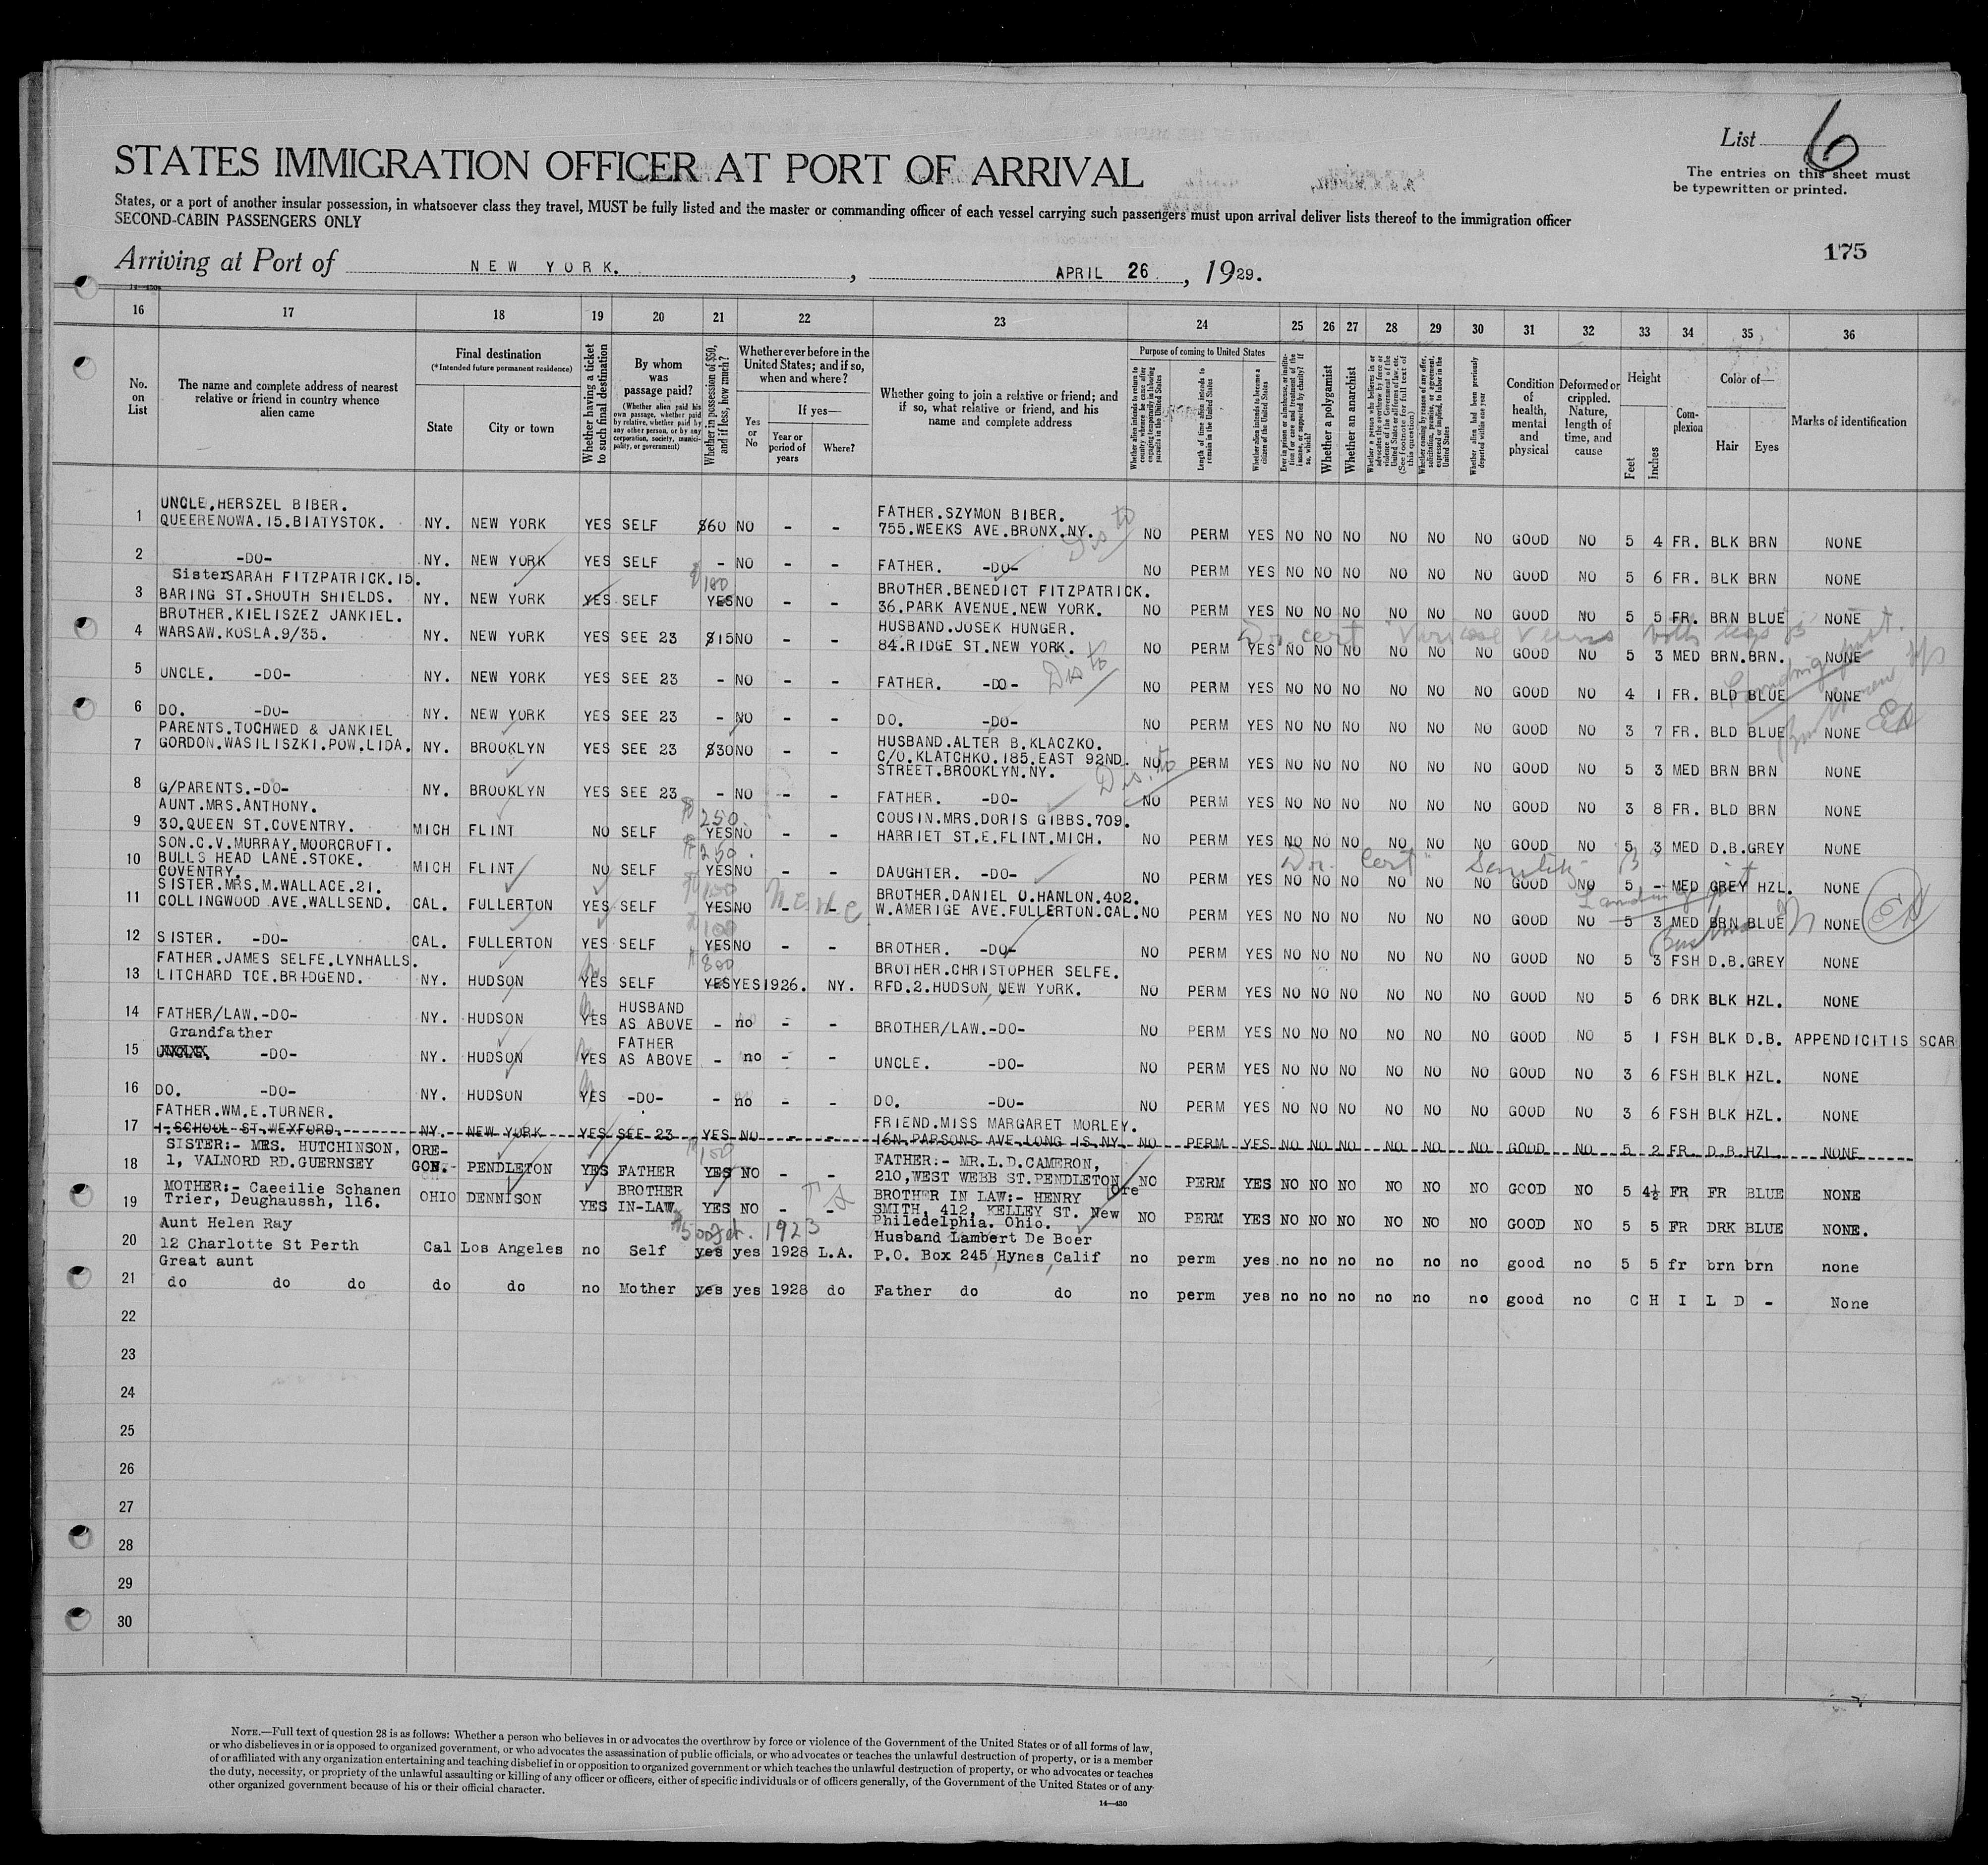 List 6
The entries on this sheet must
be typewritten or printed.
STATES IMMIGRATION OFFICER AT PORT OF ARRIVAL
States, or a port of another insular possession, in whatsoever class they travel, MUST be fully listed and the master or commanding officer of each vessel carrying such passengers must upon arrival deliver lists thereof to the immigration officer
SECOND-CABIN PASSENGERS ONLY
175
Arriving at Port of NEW YORK. , APRIL 26 , 1929.
16 17 18 19 20 21 22 23 24 25 26 27 28 29 30 31 32 33 34 35 36
No. on List
The name and complete address of nearest relative or friend in country whence alien came
Final destination
(*Intended future permanent residence)
State
City or town
Whether having a ticket to such final destination
By whom was passage paid?
(Whether alien paid his own passage, whether paid by relative, whether paid by any other person, or by any corporation, society, municipality, or government)
Whether in possession of $50, and if less, how much?
Whether ever before in the United States; and if so, when and where?
Yes or No
If yes—
Year or period of years
Where?
Whether going to join a relative or friend; and if so, what relative or friend, and his name and complete address
Purpose of coming to United States
Whether alien intends to return to country whence he came after engaging temporarily in laboring pursuits in the United States
Length of time alien intends to remain in the United States
Whether alien intends to become a citizen of the United States
Ever in prison or almshouse, or institution for care and treatment of the insane, or supported by charity? If so, which?
Whether a polygamist
Whether an anarchist
Whether a person who believes in or advocates the overthrow by force or violence of the Government of the United States or all forms of law, etc. (See footnote for full text of this question)
Whether coming by reason of any offer, solicitation, promise, or agreement, expressed or implied, to labor in the United States
Whether alien had been previously deported within one year
Condition of health, mental and physical
Deformed or crippled. Nature, length of time, and cause
Height
Feet
Inches
Complexion
Color of—
Hair
Eyes
Marks of identification
UNCLE.HERSZEL BIBER.
1 QUEERENOWA.15.BIATYSTOK. NY. NEW YORK YES SELF $60 NO - - FATHER.SZYMON BIBER. 755.WEEKS AVE.BRONX.NY. NO PERM YES NO NO NO NO NO NO GOOD NO 5 4 FR. BLK BRN NONE
2 -DO- NY. NEW YORK YES SELF - NO - - FATHER. -DO- NO PERM YES NO NO NO NO NO NO GOOD NO 5 6 FR. BLK BRN NONE
Sister SARAH FITZPATRICK.15.
3 BARING ST.SHOUTH SHIELDS. NY. NEW YORK YES SELF $100 YES NO - - BROTHER.BENEDICT FITZPATRICK. 36.PARK AVENUE.NEW YORK. NO PERM YES NO NO NO NO NO NO GOOD NO 5 5 FR. BRN BLUE NONE
BROTHER.KIELISZEZ JANKIEL.
4 WARSAW.KOSLA.9/35. NY. NEW YORK YES SEE 23 $15 NO - - HUSBAND.JOSEK HUNGER. 84.RIDGE ST.NEW YORK. NO PERM YES NO NO NO NO NO NO GOOD NO 5 3 MED BRN.BRN. NONE
Dr. cert "Varicose Veins both legs B"
5 UNCLE. -DO- NY. NEW YORK YES SEE 23 - NO - - FATHER. -DO- NO PERM YES NO NO NO NO NO NO GOOD NO 4 1 FR. BLD BLUE NONE
6 DO. -DO- NY. NEW YORK YES SEE 23 - NO - - DO. -DO- NO PERM YES NO NO NO NO NO NO GOOD NO 3 7 FR. BLD BLUE NONE
PARENTS.TOCHWED & JANKIEL
7 GORDON.WASILISZKI.POW.LIDA. NY. BROOKLYN YES SEE 23 $30 NO HUSBAND.ALTER B.KLACZKO. C/O.KLATCHKO.185.EAST 92ND. STREET.BROOKLYN.NY. NO PERM YES NO NO NO NO NO NO GOOD NO 5 3 MED BRN BRN NONE
8 G/PARENTS.-DO- NY. BROOKLYN YES SEE 23 - NO - - FATHER. -DO- NO PERM YES NO NO NO NO NO NO GOOD NO 3 8 FR. BLD BRN NONE
AUNT.MRS.ANTHONY.
9 30.QUEEN ST.COVENTRY. MICH FLINT NO SELF $250 YES NO - - COUSIN.MRS.DORIS GIBBS.709. HARRIET ST.E.FLINT.MICH. NO PERM YES NO NO NO NO NO NO GOOD NO 5 3 MED D.B.GREY NONE
SON.C.V.MURRAY.MOORCROFT.
10 BULLS HEAD LANE.STOKE. COVENTRY. MICH FLINT NO SELF $250. YES NO - - DAUGHTER. -DO- NO PERM YES NO NO NO NO NO NO GOOD NO 5 - MED GREY HZL. NONE
Dr. Cert "Senility B"
SISTER.MRS.M.WALLACE.21.
11 COLLINGWOOD AVE.WALLSEND. CAL. FULLERTON YES SELF YES NO - - BROTHER.DANIEL O.HANLON.402. W.AMERIGE AVE.FULLERTON.CAL. NO PERM YES NO NO NO NO NO NO GOOD NO 5 3 MED BRN BLUE NONE
12 SISTER. -DO- CAL. FULLERTON YES SELF $100 YES NO - - BROTHER. -DO- NO PERM YES NO NO NO NO NO NO GOOD NO 5 3 FSH D.B.GREY NONE
FATHER.JAMES SELFE.LYNHALLS.
13 LITCHARD TCE.BRIDGEND. NY. HUDSON YES SELF $800 YES YES 1926. NY. BROTHER.CHRISTOPHER SELFE. RFD.2.HUDSON, NEW YORK. NO PERM YES NO NO NO NO NO NO GOOD NO 5 6 DRK BLK HZL. NONE
14 FATHER/LAW.-DO- NY. HUDSON YES HUSBAND AS ABOVE - no - - BROTHER/LAW.-DO- NO PERM YES NO NO NO NO NO NO GOOD NO 5 1 FSH BLK D.B. APPENDICITIS SCAR
Grandfather
15 -DO- NY. HUDSON YES FATHER AS ABOVE - no - - UNCLE. -DO- NO PERM YES NO NO NO NO NO NO GOOD NO 3 6 FSH BLK HZL. NONE
16 DO. -DO- NY. HUDSON YES -DO- - no - - DO. -DO- NO PERM YES NO NO NO NO NO NO GOOD NO 3 6 FSH BLK HZL. NONE
FATHER.WM.E.TURNER.
17 1.SCHOOL ST.WEXFORD. NY. NEW YORK YES SEE 23 YES NO - - FRIEND.MISS MARGARET MORLEY. 16N.PARSONS AVE.LONG IS.NY. NO PERM YES NO NO NO NO NO NO GOOD NO 5 2 FR. D.B.HZL. NONE
SISTER:- MRS. HUTCHINSON,
18 1, VALNORD RD.GUERNSEY OREGON. PENDLETON YES FATHER YES NO - - FATHER:- MR.L.D.CAMERON, 210,WEST WEBB ST.PENDLETON Ore NO PERM YES NO NO NO NO NO NO GOOD NO 5 4½ FR FR BLUE NONE
MOTHER:- Caeeilie Schanen
19 Trier, Deughaussh, 116. OHIO DENNISON YES BROTHER IN-LAW YES NO - - BROTHER IN LAW:- HENRY SMITH, 412, KELLEY ST. New Philedelphia. Ohio. NO PERM YES NO NO NO NO NO NO GOOD NO 5 5 FR DRK BLUE NONE.
Aunt Helen Ray
20 12 Charlotte St Perth Cal Los Angeles no Self yes yes 1923 1928 L.A. Husband Lambert De Boer P.O. Box 245 Hynes, Calif no perm yes no no no no no no good no 5 5 fr brn brn none
Great aunt
21 do do do do do no Mother yes yes 1928 do Father do do no perm yes no no no no no no good no CHILD - None
22
23
24
25
26
27
28
29
30
NOTE.—Full text of question 28 is as follows: Whether a person who believes in or advocates the overthrow by force or violence of the Government of the United States or of all forms of law,
or who disbelieves in or is opposed to organized government, or who advocates the assassination of public officials, or who advocates or teaches the unlawful destruction of property, or is a member
of or affiliated with any organization entertaining and teaching disbelief in or opposition to organized government or which teaches the unlawful destruction of property, or who advocates or teaches
the duty, necessity, or propriety of the unlawful assaulting or killing of any officer or officers, either of specific individuals or of officers generally, of the Government of the United States or of any
other organized government because of his or their official character.
14—430